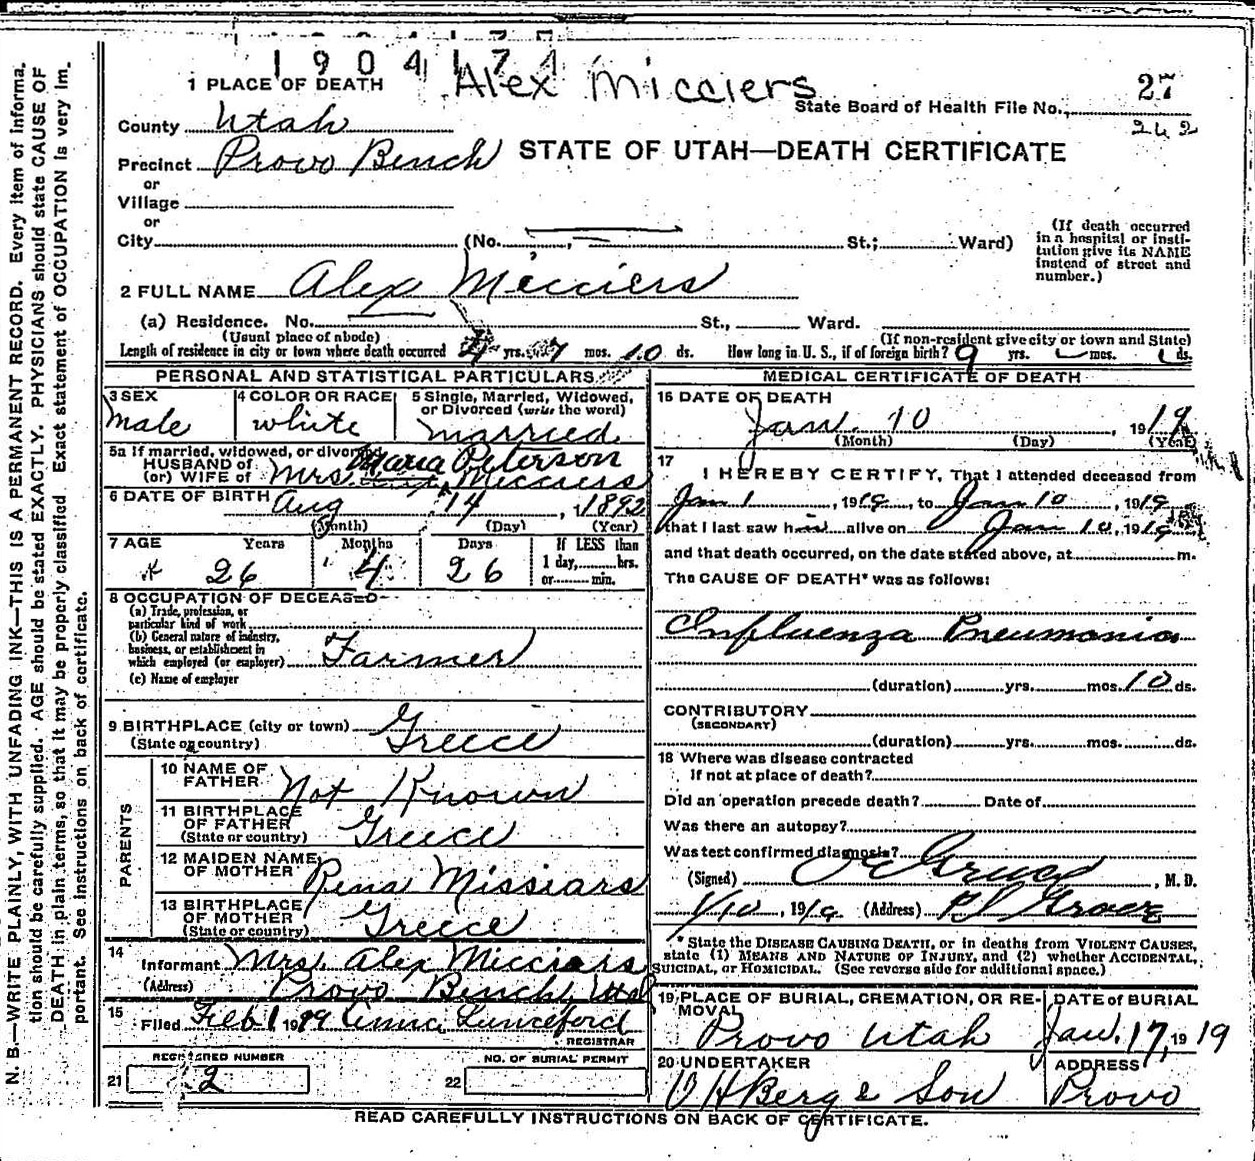 1904174
Alex Micciers
1 PLACE OF DEATH
State Board of Health File No. 27
242
County Utah
Precinct Provo Bench
STATE OF UTAH—DEATH CERTIFICATE
or
Village
or
City (No. St.; Ward)
(If death occurred in a hospital or institution give its NAME instead of street and number.)
2 FULL NAME Alex Micciers
(a) Residence. No. St., Ward.
(Usual place of abode) (If non-resident give city or town and State)
Length of residence in city or town where death occurred yrs. 7 mos. 10 ds. How long in U. S., if of foreign birth? 9 yrs. mos. ds.
PERSONAL AND STATISTICAL PARTICULARS
3 SEX male
4 COLOR OR RACE white
5 Single, Married, Widowed, or Divorced (write the word) married
5a If married, widowed, or divorced
HUSBAND of
(or) WIFE of Mrs. Maria Peterson Micciers
6 DATE OF BIRTH Aug 14, 1892
(Month) (Day) (Year)
7 AGE Years Months Days If LESS than
26 4 26 1 day, hrs.
or min.
8 OCCUPATION OF DECEASED
(a) Trade, profession, or
particular kind of work
(b) General nature of industry,
business, or establishment in
which employed (or employer) Farmer
(c) Name of employer
9 BIRTHPLACE (city or town) Greece
(State or country)
PARENTS
10 NAME OF FATHER Not Known
11 BIRTHPLACE OF FATHER Greece
(State or country)
12 MAIDEN NAME OF MOTHER Rena Missiars
13 BIRTHPLACE OF MOTHER Greece
(State or country)
14
Informant Mrs. Alex Micciars
(Address) Provo Bench, Utah
15
Filed Feb 1 1919 Lunceford
REGISTRAR
REGISTERED NUMBER NO. OF BURIAL PERMIT
21 2 22
MEDICAL CERTIFICATE OF DEATH
16 DATE OF DEATH
Jan. 10, 1919
(Month) (Day) (Year)
17
I HEREBY CERTIFY, That I attended deceased from
Jan 1, 1919, to Jan 10, 1919
that I last saw him alive on Jan 10, 1919
and that death occurred, on the date stated above, at m.
The CAUSE OF DEATH* was as follows:
Influenza Pneumonia
(duration) yrs. mos. 10 ds.
CONTRIBUTORY
(SECONDARY)
(duration) yrs. mos. ds.
18 Where was disease contracted
if not at place of death?
Did an operation precede death? Date of
Was there an autopsy?
Was test confirmed diagnosis?
(Signed) , M. D.
1/10, 1919 (Address)
* State the DISEASE CAUSING DEATH, or in deaths from VIOLENT CAUSES,
state (1) MEANS AND NATURE OF INJURY, and (2) whether ACCIDENTAL,
SUICIDAL, or HOMICIDAL. (See reverse side for additional space.)
19 PLACE OF BURIAL, CREMATION, OR REMOVAL Provo Utah
DATE of BURIAL Jan. 17, 1919
20 UNDERTAKER O H Berg & Son
ADDRESS Provo
READ CAREFULLY INSTRUCTIONS ON BACK OF CERTIFICATE.
N. B.—WRITE PLAINLY, WITH UNFADING INK—THIS IS A PERMANENT RECORD. Every item of informa-
tion should be carefully supplied. AGE should be stated EXACTLY. PHYSICIANS should state CAUSE OF
DEATH in plain terms, so that it may be properly classified. Exact statement of OCCUPATION is very im-
portant. See instructions on back of certificate.